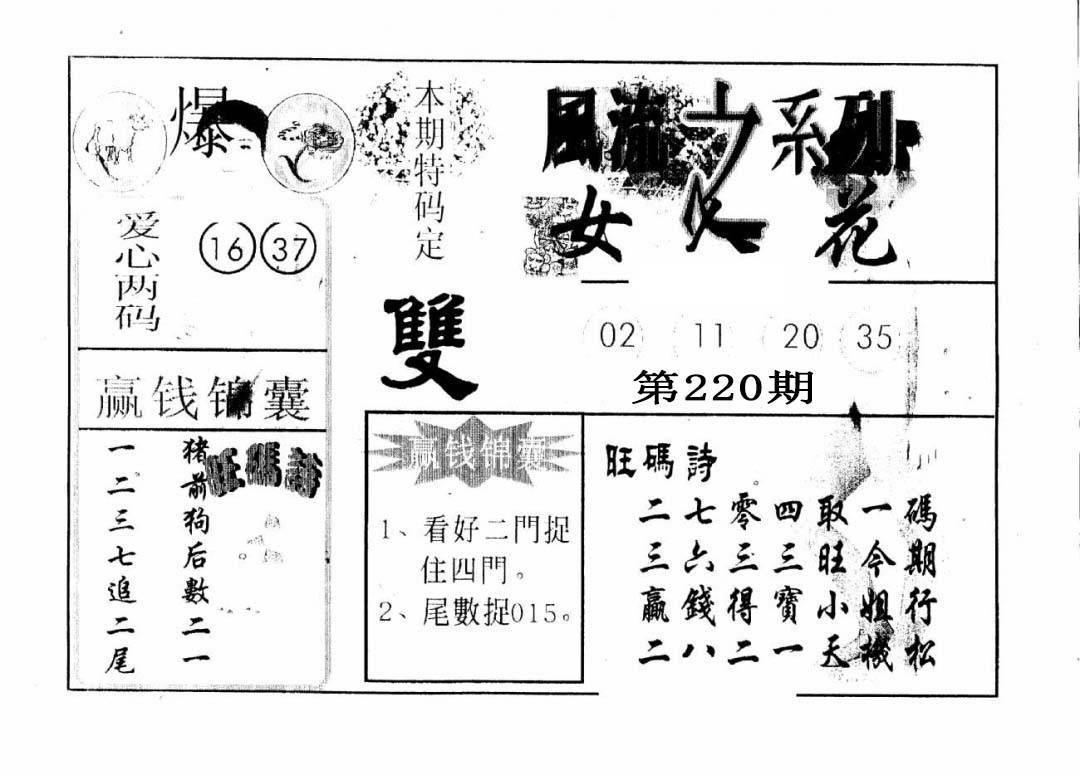 爆
爱心两码
16 37
赢钱锦囊
一二三七追二尾
猪前狗后數二一
旺碼詩
本期特码定
雙
赢钱锦囊
1、看好二門捉
住四門。
2、尾數捉015。
風流之系列
女人花
02 11 20 35
第220期
旺碼詩
二七零四取一碼
三六三三旺今期
贏錢得寶小姐行
二八二一天機松